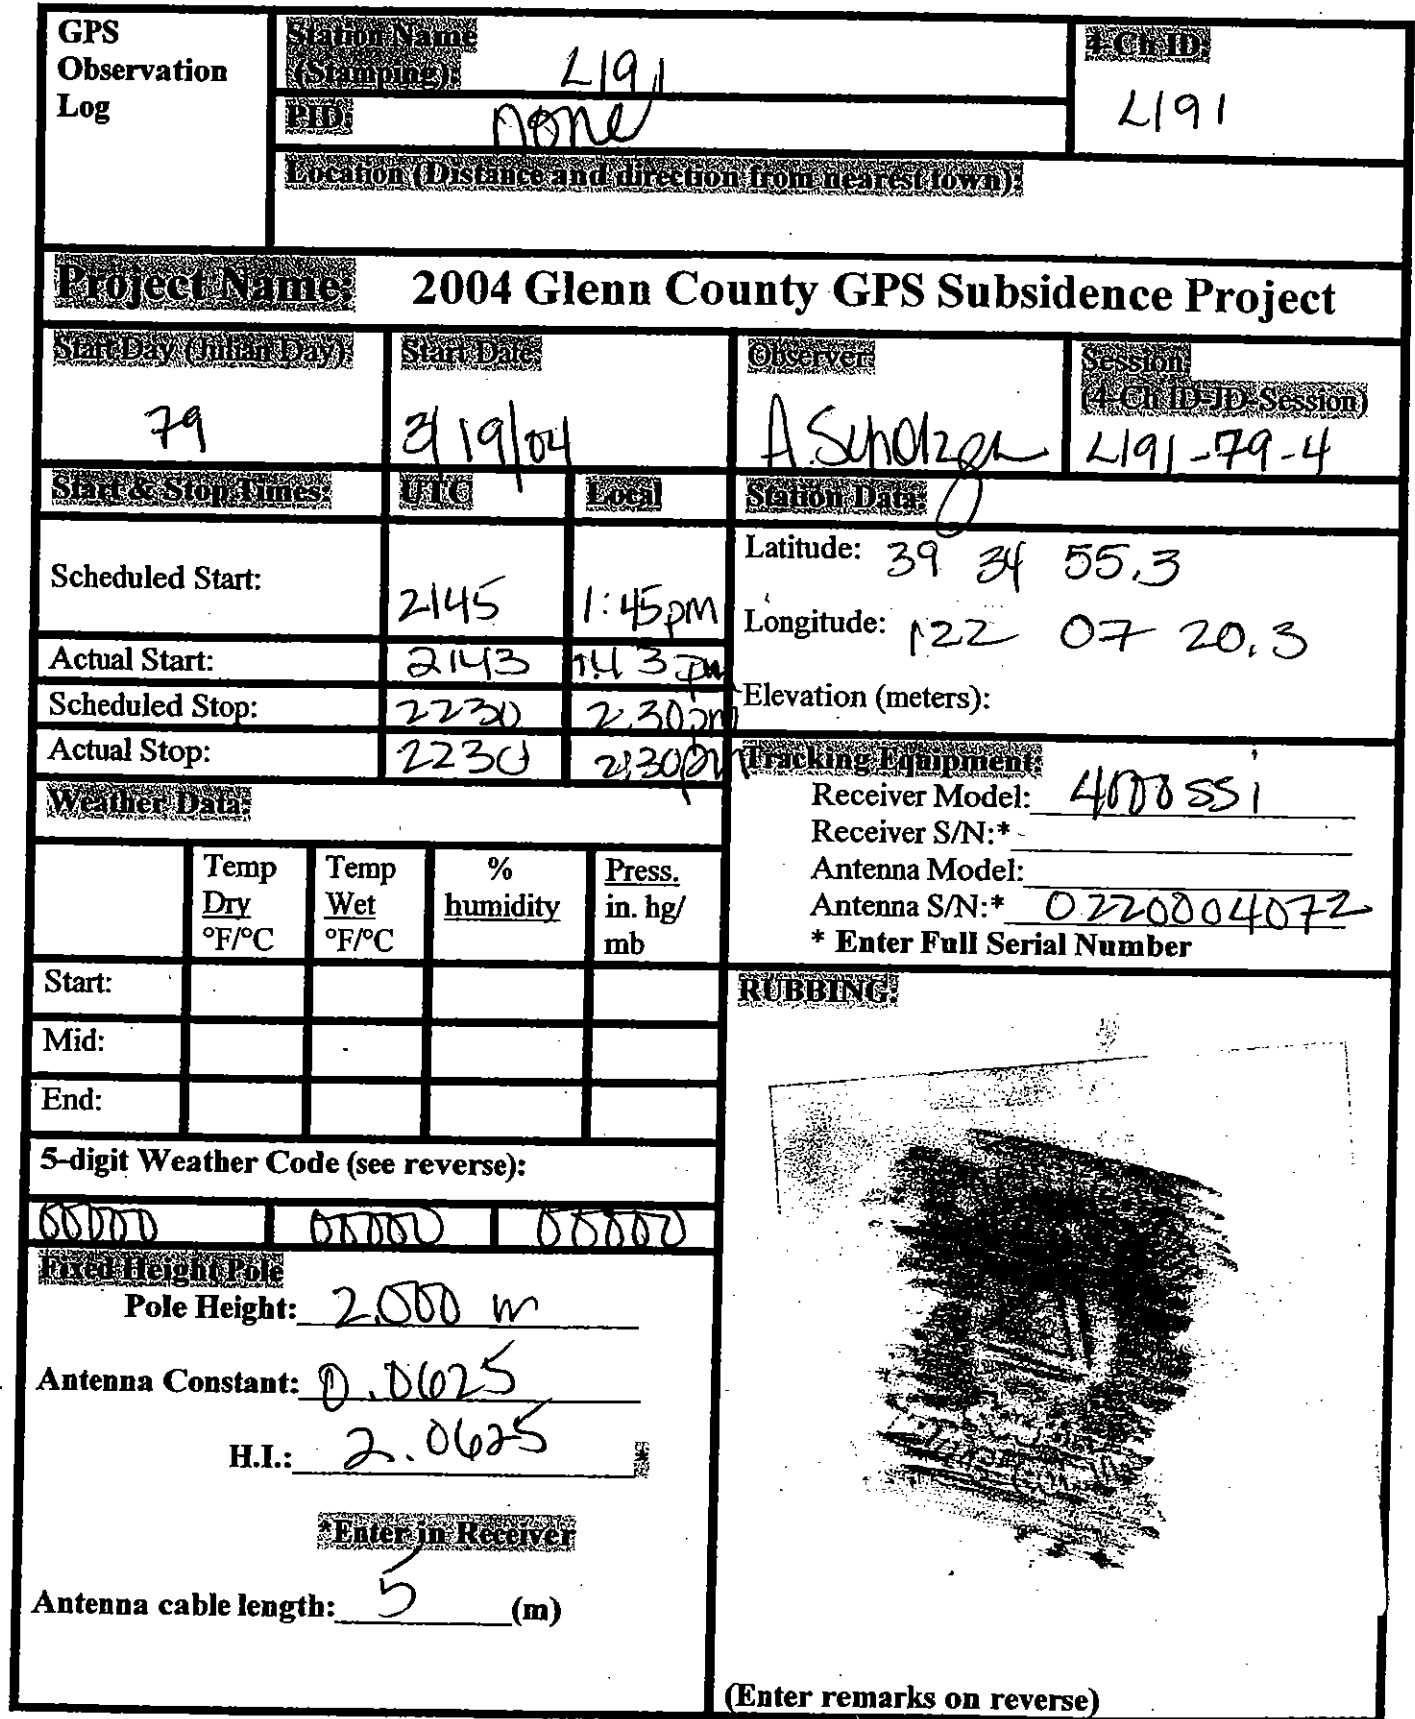 GPS
Observation
Log
Station Name
(Stamping): L191
PID: none
4-Ch ID:
L191
Location (Distance and direction from nearest town):
Project Name: 2004 Glenn County GPS Subsidence Project
Start Day (Julian Day)
79
Start Date
3/19/04
Observer
Session:
(4-Ch ID-JD-Session)
L191-79-4
Start & Stop Times: UTC Local
Scheduled Start: 2145 1:45pm
Actual Start: 2143 1:43pm
Scheduled Stop: 2230 2:30pm
Actual Stop: 2230 2:30pm
Station Data:
Latitude: 39 34 55.3
Longitude: 122 07 20.3
Elevation (meters):
Tracking Equipment:
Receiver Model: 4000 SSi
Receiver S/N:*
Antenna Model:
Antenna S/N:* 0220004072
* Enter Full Serial Number
Weather Data:
Temp
Dry
°F/°C
Temp
Wet
°F/°C
%
humidity
Press.
in. hg/
mb
Start:
Mid:
End:
5-digit Weather Code (see reverse):
00000 00000 00000
Fixed Height Pole
Pole Height: 2.000 m
Antenna Constant: 0.0625
H.I.: 2.0625 *
*Enter in Receiver
Antenna cable length: 5 (m)
RUBBING:
(Enter remarks on reverse)